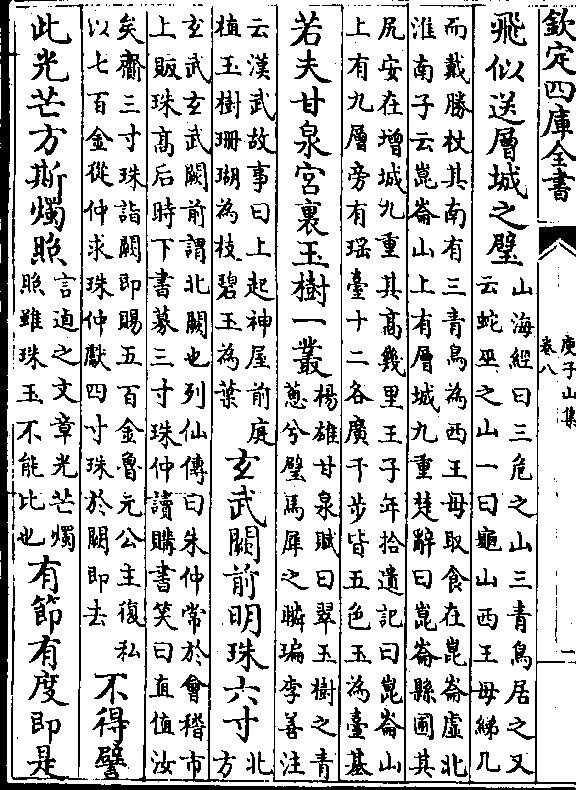 欽定四庫全書
庾子山集
卷八
一
飛似送層城之璧
山海經曰三危之山三青鳥居之又
云蛇巫之山一曰龜山西王母綈几
而戴勝杖其南有三青鳥為西王母取食在崑崙虛北
淮南子云崑崙山上有層城九重楚辭曰崑崙縣圃其
尻安在增城九重其高幾里王子年拾遺記曰崑崙山
上有九層旁有瑶臺十二各廣千步皆五色玉為臺基
若夫甘泉宮裏玉樹一叢
楊雄甘泉賦曰翠玉樹之青
蔥兮璧馬犀之瞵㻞李善注
云漢武故事曰上起神屋前庭
植玉樹珊瑚為枝碧玉為葉
玄武闕前明珠六寸
北
方
玄武玄武闕前謂北闕也列仙傳曰朱仲常於會稽市
上販珠高后時下書募三寸珠仲讀購書笑曰直值汝
矣齎三寸珠詣闕即賜五百金魯元公主復私
以七百金從仲求珠仲獻四寸珠於闕即去
不得譬
此光芒方斯燭照
言迪之文章光芒燭
照雖珠玉不能比也
有節有度即是